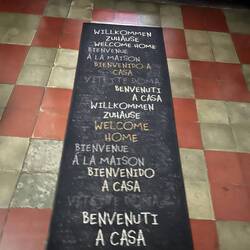 WILLKOMMEN
ZUHAUSE
WELCOME HOME
BIENVENUE
À LA MAISON
BIENVENIDO A
CASA
VÍTEJTE DOMA
BENVENUTI
A CASA
WILLKOMMEN
ZUHAUSE
WELCOME
HOME
BIENVENUE
À LA MAISON
BIENVENIDO
A CASA
VÍTEJTE DOMA
BENVENUTI
A CASA